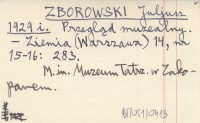 ZBOROWSKI Juljusz
1929 i. Przegląd muzealny.
- Ziemia (Warszawa) 14, nr
15-16: 283.
M. in. Muzeum Tatrz. w Zako-
panem.